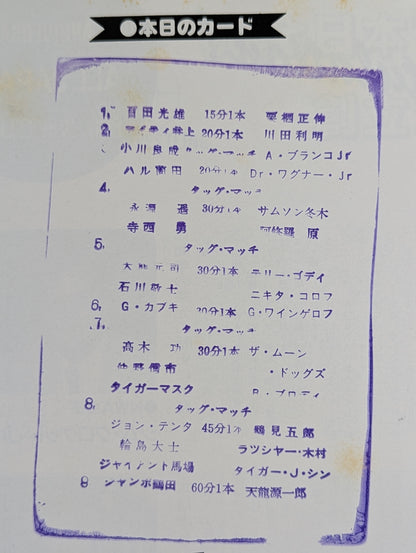 ●本日のカード
1. 百田光雄 15分1本 栗栖正伸
2. マイティ井上 20分1本 川田利明
小川良成 タッグ・マッチ A・ブランコJr
ハル薗田 20分1本 Dr・ワグナー・Jr
4. タッグ・マッチ
永源 遥 30分1本 サムソン冬木
寺西 勇 阿修羅 原
5. タッグ・マッチ
大熊元司 30分1本 テリー・ゴディ
石川敬士 ニキタ・コロフ
6. G・カブキ 30分1本 G・ワインゲロフ
7. タッグ・マッチ
高木 功 30分1本 ザ・ムーン
・ドッグズ
タイガーマスク B・ブロディ
8. タッグ・マッチ
ジョン・テンタ 45分1本 鶴見五郎
輪島大士 ラツシャー・木村
ジャイアント馬場 タイガー・J・シン
9 ジャンボ鶴田 60分1本 天龍源一郎